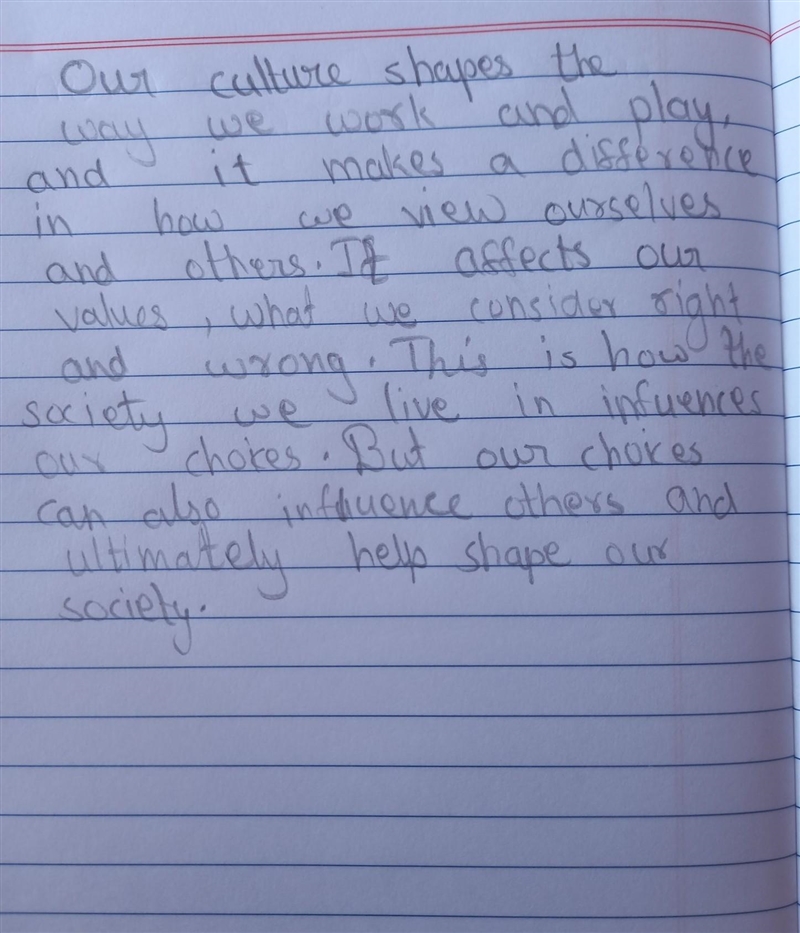 Our culture shapes the
way we work and play,
and it makes a difference
in how we view ourselves
and others. It affects our
values, what we consider right
and wrong. This is how the
society we live in infuences
our choices. But our choices
can also influence others and
ultimately help shape our
society.